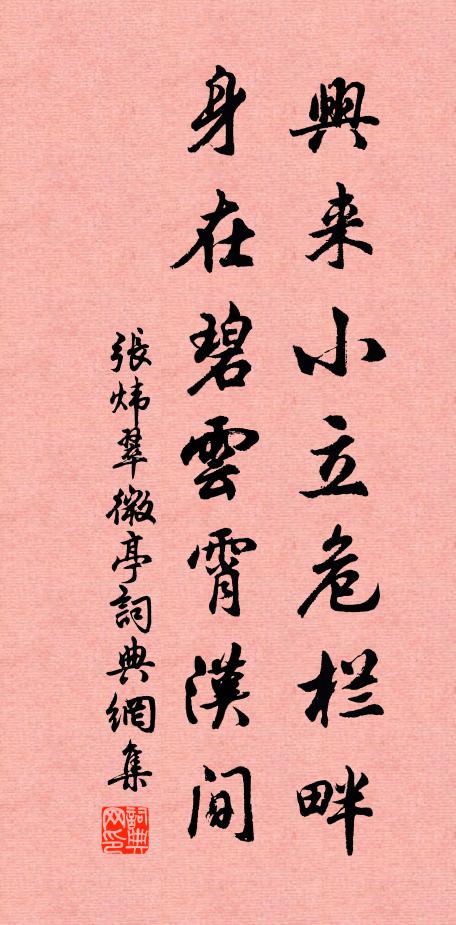 興来小立危栏畔
身在碧雲霄漢間
張炜翠微亭詞典網集
詞典网印